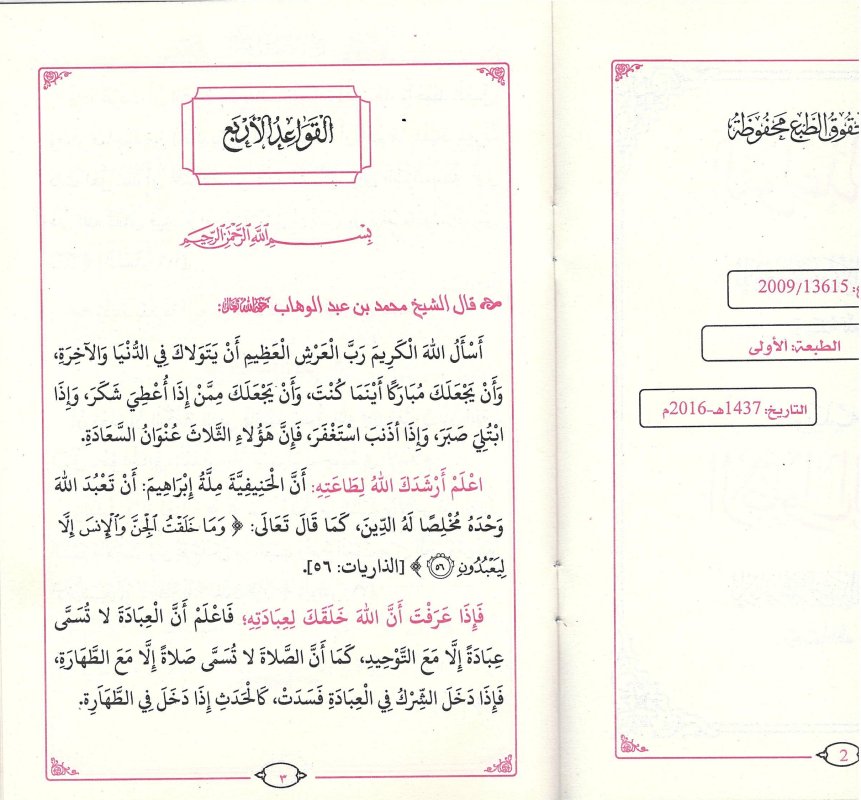 حقوق الطبع محفوظة
2009/13615
الطبعة: الأولى
التاريخ: 1437هـ-2016م
2
القَوَاعِدُ الأَرْبَع
بِسْمِ اللَّهِ الرَّحْمَٰنِ الرَّحِيمِ
قال الشيخ محمد بن عبد الوهاب رحمه الله تعالى:
أَسْأَلُ اللهَ الْكَرِيمَ رَبَّ الْعَرْشِ الْعَظِيمِ أَنْ يَتَوَلاكَ فِي الدُّنْيَا وَالآخِرَةِ،
وَأَنْ يَجْعَلَكَ مُبَارَكًا أَيْنَمَا كُنْتَ، وَأَنْ يَجْعَلَكَ مِمَّنْ إِذَا أُعْطِيَ شَكَرَ، وَإِذَا
ابْتُلِيَ صَبَرَ، وَإِذَا أذنَبَ اسْتَغْفَرَ، فَإِنَّ هَؤُلاءِ الثَّلاثَ عُنْوَانُ السَّعَادَةِ.
اعْلَمْ أَرْشَدَكَ اللهُ لِطَاعَتِهِ: أَنَّ الْحَنِيفِيَّةَ مِلَّةُ إِبْرَاهِيمَ: أَنْ تَعْبُدَ اللهَ
وَحْدَهُ مُخْلِصًا لَهُ الدِّينَ، كَمَا قَالَ تَعَالَى: ﴿ وَمَا خَلَقْتُ ٱلْجِنَّ وَٱلْإِنسَ إِلَّا
لِيَعْبُدُونِ ٥٦ ﴾ [الذاريات: ٥٦].
فَإِذَا عَرَفْتَ أَنَّ اللهَ خَلَقَكَ لِعِبَادَتِهِ؛ فَاعْلَمْ أَنَّ الْعِبَادَةَ لا تُسَمَّى
عِبَادَةً إِلَّا مَعَ التَّوْحِيدِ، كَمَا أَنَّ الصَّلاةَ لا تُسَمَّى صَلاةً إِلَّا مَعَ الطَّهَارَةِ،
فَإِذَا دَخَلَ الشِّرْكُ فِي الْعِبَادَةِ فَسَدَتْ، كَالْحَدَثِ إِذَا دَخَلَ فِي الطَّهَارَةِ.
٣